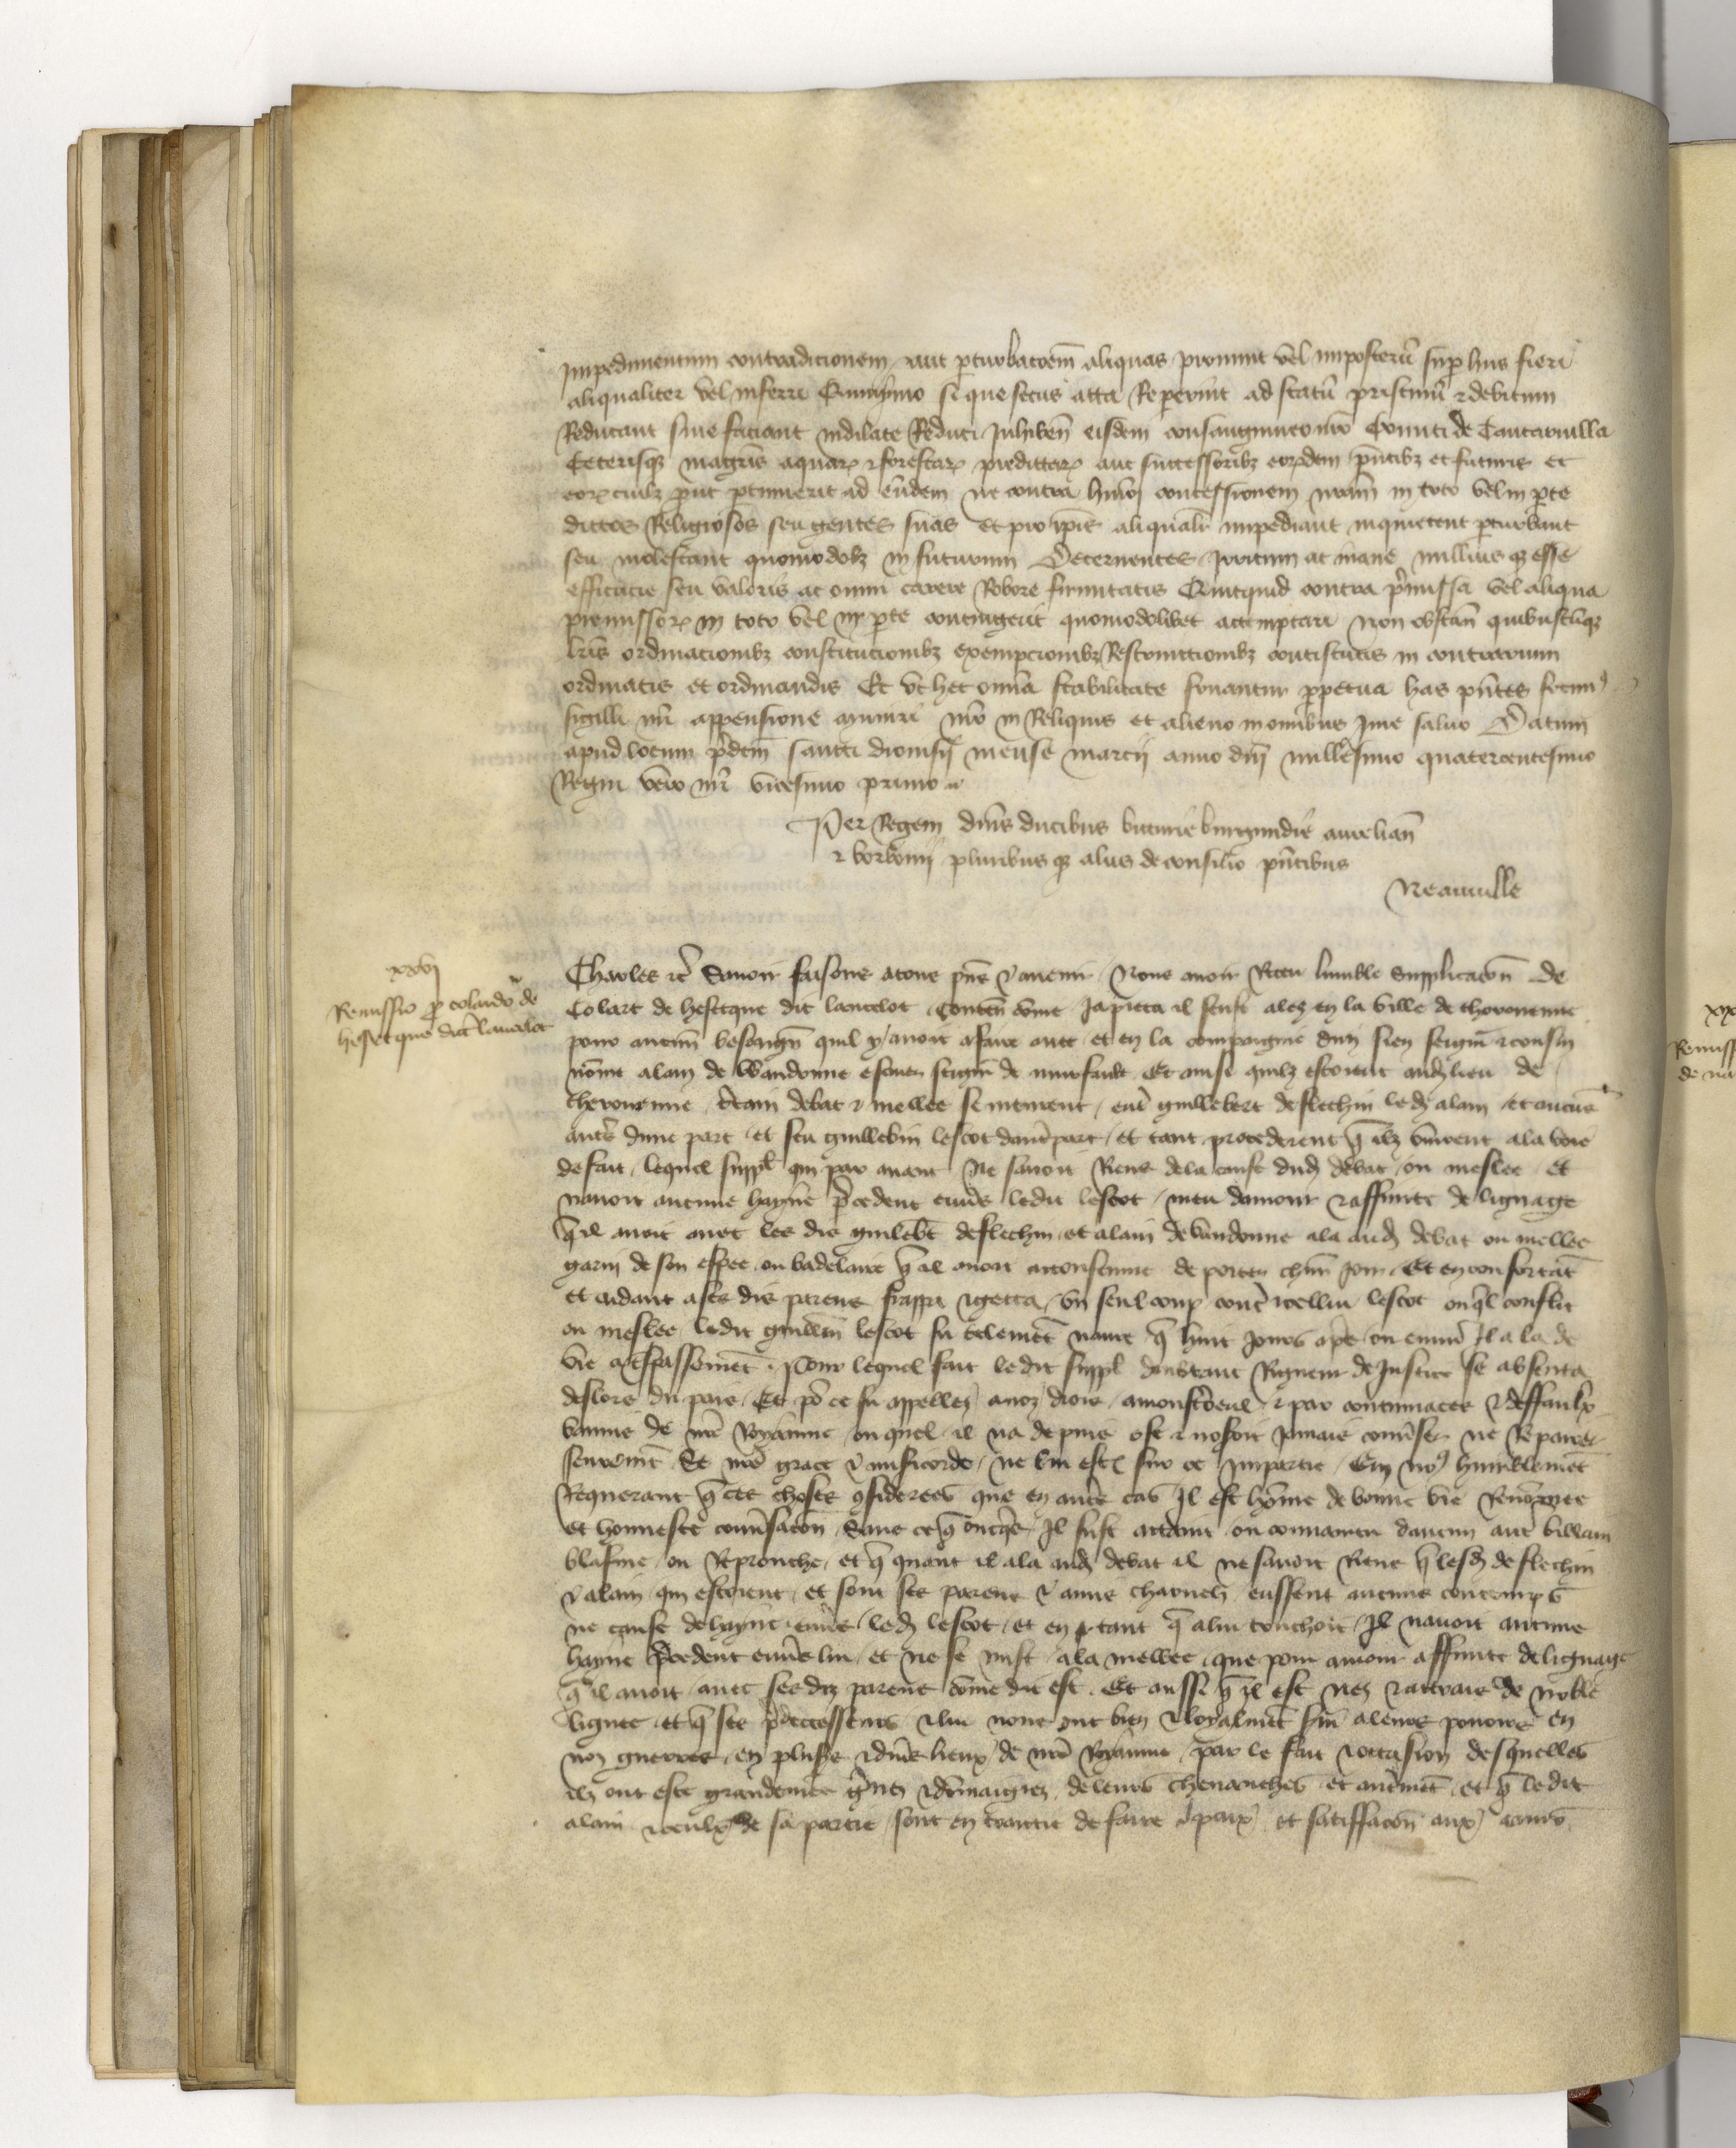 Impedimentum contradicionem aut perturbacoem aliquas pronunt vel imposterum super hiis fieri
aliqualiter vel inferri Quinymo si que secus acta Reperint ad statum pristinum et debitum
Reducant sive faciant indilate Reduci Inhiben eisdem consanguineo nro Comiti de Tancarvilla
Ceterisque magris aquarum et forestarum predictarum aut successoribz eorumdem pntibz et futuris et
eorum cuilz put ptinuerit ad eundem ne contra hmoi concessionem nram in toto vel in pte
dictos Religiosos seu gentes suas et pro ipis aliqualr impediant inquietent perturbent
seu molestent quomodolz in futurum Decernentes Irritum ac inane nullius que esse
efficacie seu valoris ac omni carere Robore firmitatis Quicquid contra premissa vel aliqua
premissorum in toto vel in pte contingerit quomodolibet actemptari non obstan quibuscumque
lris ordinacionibz constitucionibz exempcionibz Restrinctionibz
ordinatis et ordinandis Et ut hec omnia stabilitate firmantur perpetua has pntes fecimus
sigilli nri appensione muniri nro in Reliquis et alieno in omnibus Jure salvo Datum
apud locum pdcm sancti dionisii mense marcii anno dni millesimo quatercentesimo
Regni vero nri vicesimo primo
Per Regem dnis ducibus biturie burgundie aurelian
et borbonii pluribus que aliis de consilio pntibus
Neauville
xxvi
Remissio pro colardo de
hestque dict lancelot
Charles etc Savoir faisons a tous pns et avenir Nous avoir Receu lumble supplicacon de
Colart de hestque dit lancelot Conten come Ja pieca il feust alez en la ville de therouenne
pour aucun besongn quil y avoit a faire avec et en la compaignie dun sien seign et cousin
nomme alain de Wandonne escuier seign de Et ainsi quilz estoient audit lieu de
therouenne certain debat et mellee se meurent entre guillebert de flechin led alain et aucuns
autres dune part et feu guillebin lescot dautre part et tant procederent que ilz vindrent a la voie
de fait lequel suppl qui par avant ne savoit Riens de la cause dud debat ou meslee et
navoit aucune hayne precedent envers ledit lescot meu damour et affinite de lignage
quil avoit avec les dis guilebt de flechin et alain de vandonne ala aud debat ou mellee
garni de son espee ou badelaire quil avoit acoustume de porter chun jour Et en confortant
et aidant a ses dis parens frappa et getta un seul coup contre icellui lescot ouquel conflit
ou meslee ledit guillem lescot fu telement navre que huit jours apres ou environ il ala de
vie a trespassement Pour lequel fait ledit suppl doubtant Rigueur de Justice se absenta
deslors du pais Et pour ce fu appellez a noz drois a monstroeul et par contumaces et deffaulx
banniz de nre Royaume ouquel il na depuis ose et noseroit jamais converser ne Reparer
seurement Se nre grace et misericorde ne lui estoit sur ce Impartie Em nous humblement
Requerant que ces choses considerees que en autres cas il est homme de bonne vie Renommee
et honneste conversacion Sans ce que onques il fust actaint ou convaincu daucun autre villain
blasme ou Reprouche et que quant il ala aud debat il ne savoit Riens que lesd de flechin
et alain qui estoient et sont ses parens et amis charnelz eussent aucuns contemps
ne cause de hayne envers led lescot et en tant que a lui touchoit il navoit aucune
hayne precedent envers lui et ne se mist a la mellee que pour amour affinite de lignage
quil avoit avec ses diz parens come dit est Et aussi quil est nez et attrais de noble
lignee et que ses predecesseurs et lui nous ont bien et loyalment servi a leurs povoirs en
noz guerres en pluss et divers lieux de nre Royaume par le fait et occasion desquelles
ilz ont este grandement grevez et dommaigiez de leurs chevanches et autrement et que ledit
alain et ceulx de sa partie sont en traictie de faire paix et satiffacon aux amis